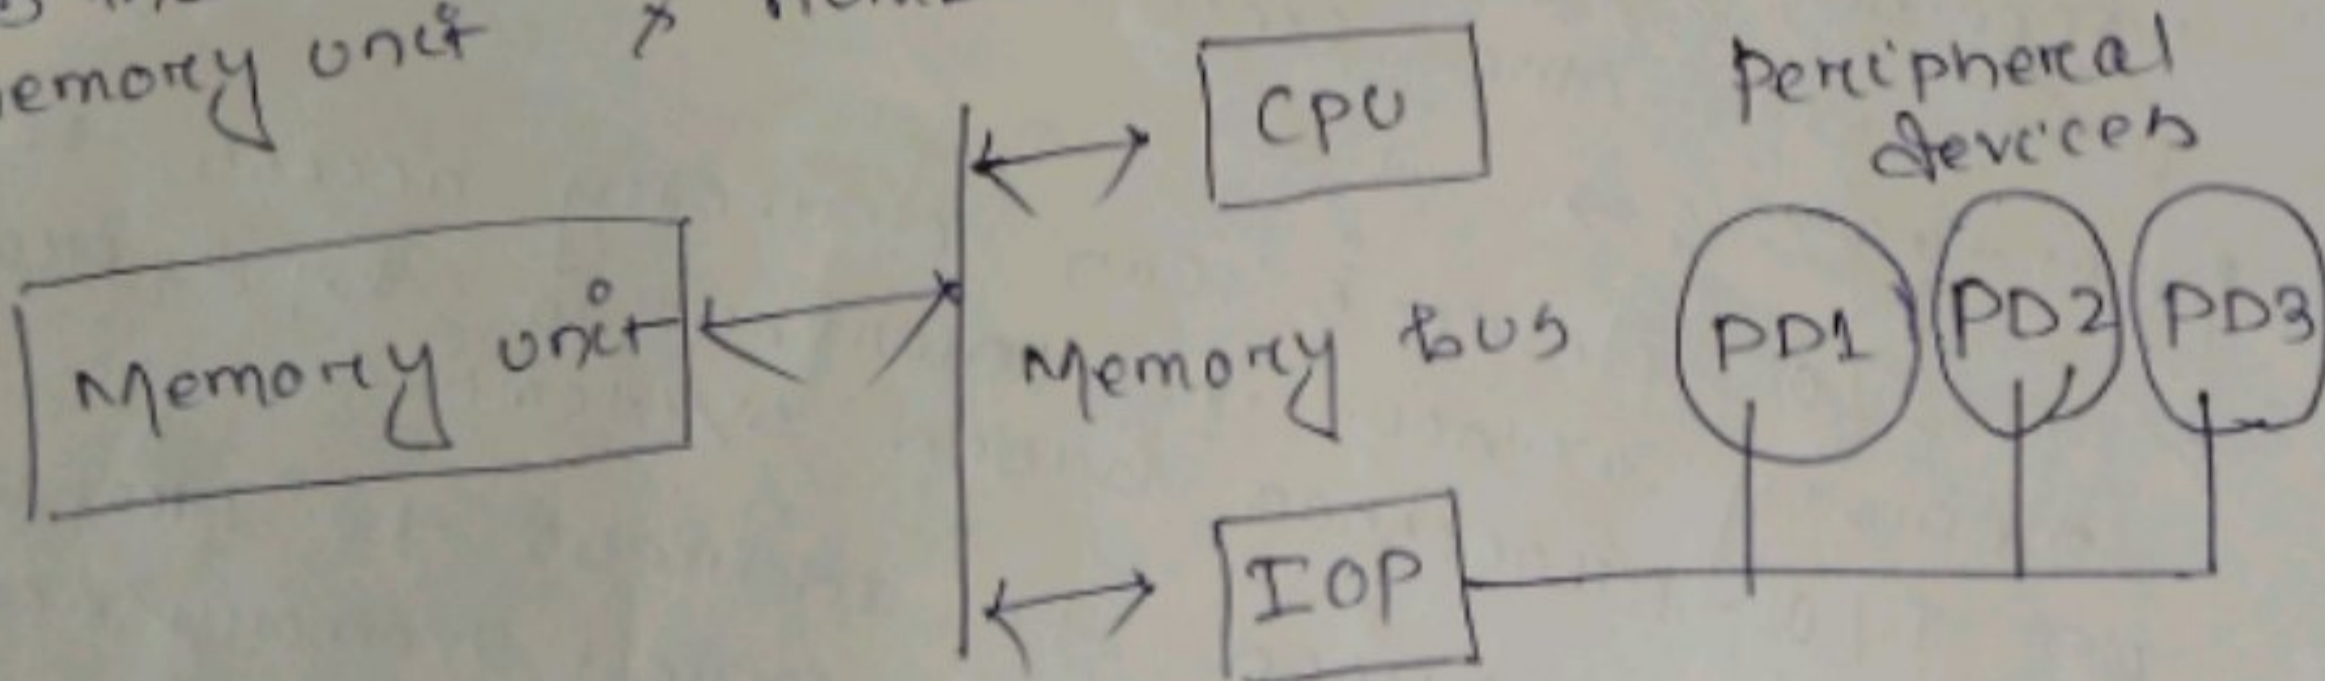 emory unit
CPU
Peripheral
devices
Memory unit
Memory bus
PD1
PD2
PD3
IOP